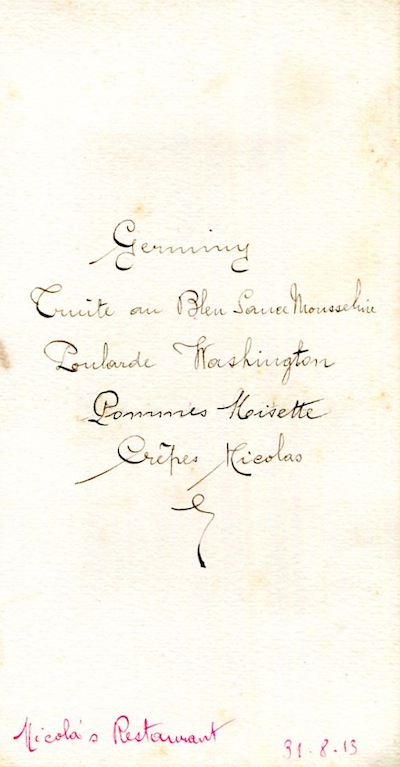 Germiny
Truite au Bleu Sauce Mousseline
Poularde Washington
Pommes Noisette
Crêpes Nicolas
Nicola's Restaurant 31-8-13